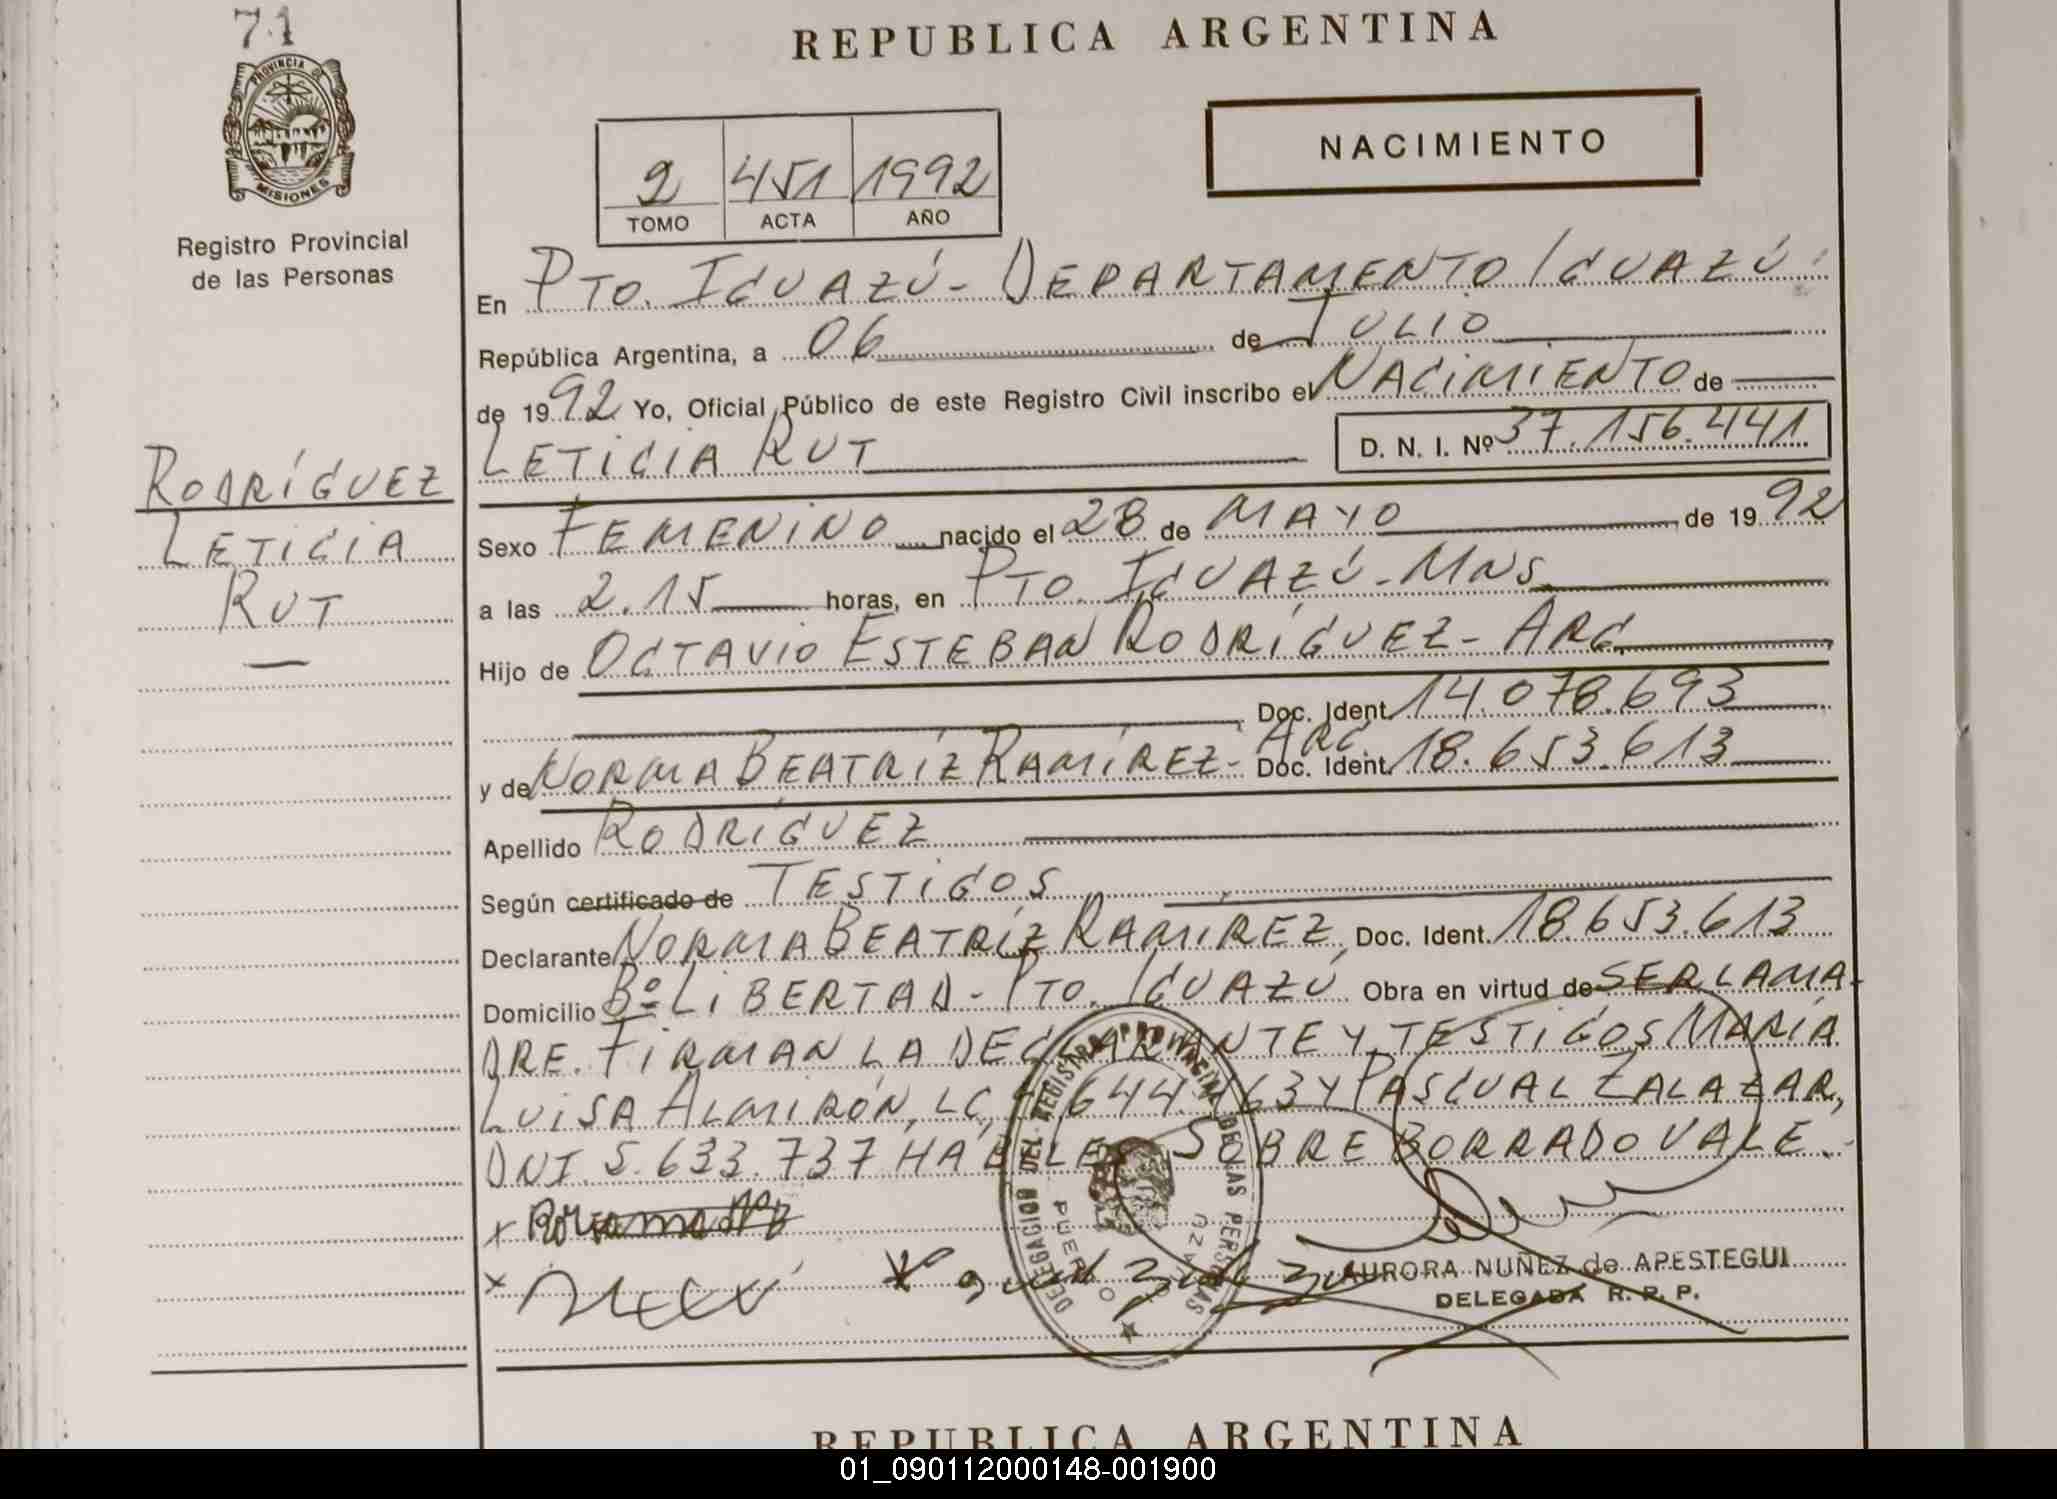 71
REPUBLICA ARGENTINA
PROVINCIA DE
MISIONES
Registro Provincial
de las Personas
2 451 1992
TOMO ACTA AÑO
NACIMIENTO
En PTO. IGUAZÚ - DEPARTAMENTO IGUAZÚ
República Argentina, a 06 de JULIO
de 1992 Yo, Oficial Público de este Registro Civil inscribo el NACIMIENTO de
LETICIA RUT D. N. I. Nº 37.156.441
RODRÍGUEZ
LETICIA
RUT
Sexo FEMENINO nacido el 28 de MAYO de 1992
a las 2.15 horas, en PTO. IGUAZÚ - MNS.
Hijo de OCTAVIO ESTEBAN RODRÍGUEZ - ARG.
Doc. Ident. 14.078.693
y de NORMA BEATRÍZ RAMÍREZ - ARG. Doc. Ident. 18.653.613
Apellido RODRÍGUEZ
Según certificado de TESTIGOS
Declarante NORMA BEATRÍZ RAMÍREZ, Doc. Ident. 18.653.613
Domicilio Bº LIBERTAD - PTO. IGUAZÚ Obra en virtud de SER LA MA-
DRE. FIRMAN LA DECLARANTE Y TESTIGOS MARÍA
LUISA ALMIRÓN, LC, Y PASCUAL ZALAZAR,
DNI 5.633.737 HÁBILES SOBRE BORRADO VALE.-
DELEGACION DEL REGISTRO PROVINCIAL DE LAS PERSONAS
PUERTO IGUAZU
AURORA NUÑEZ de APESTEGUI
DELEGADA R. P. P.
REPUBLICA ARGENTINA
01_090112000148-001900